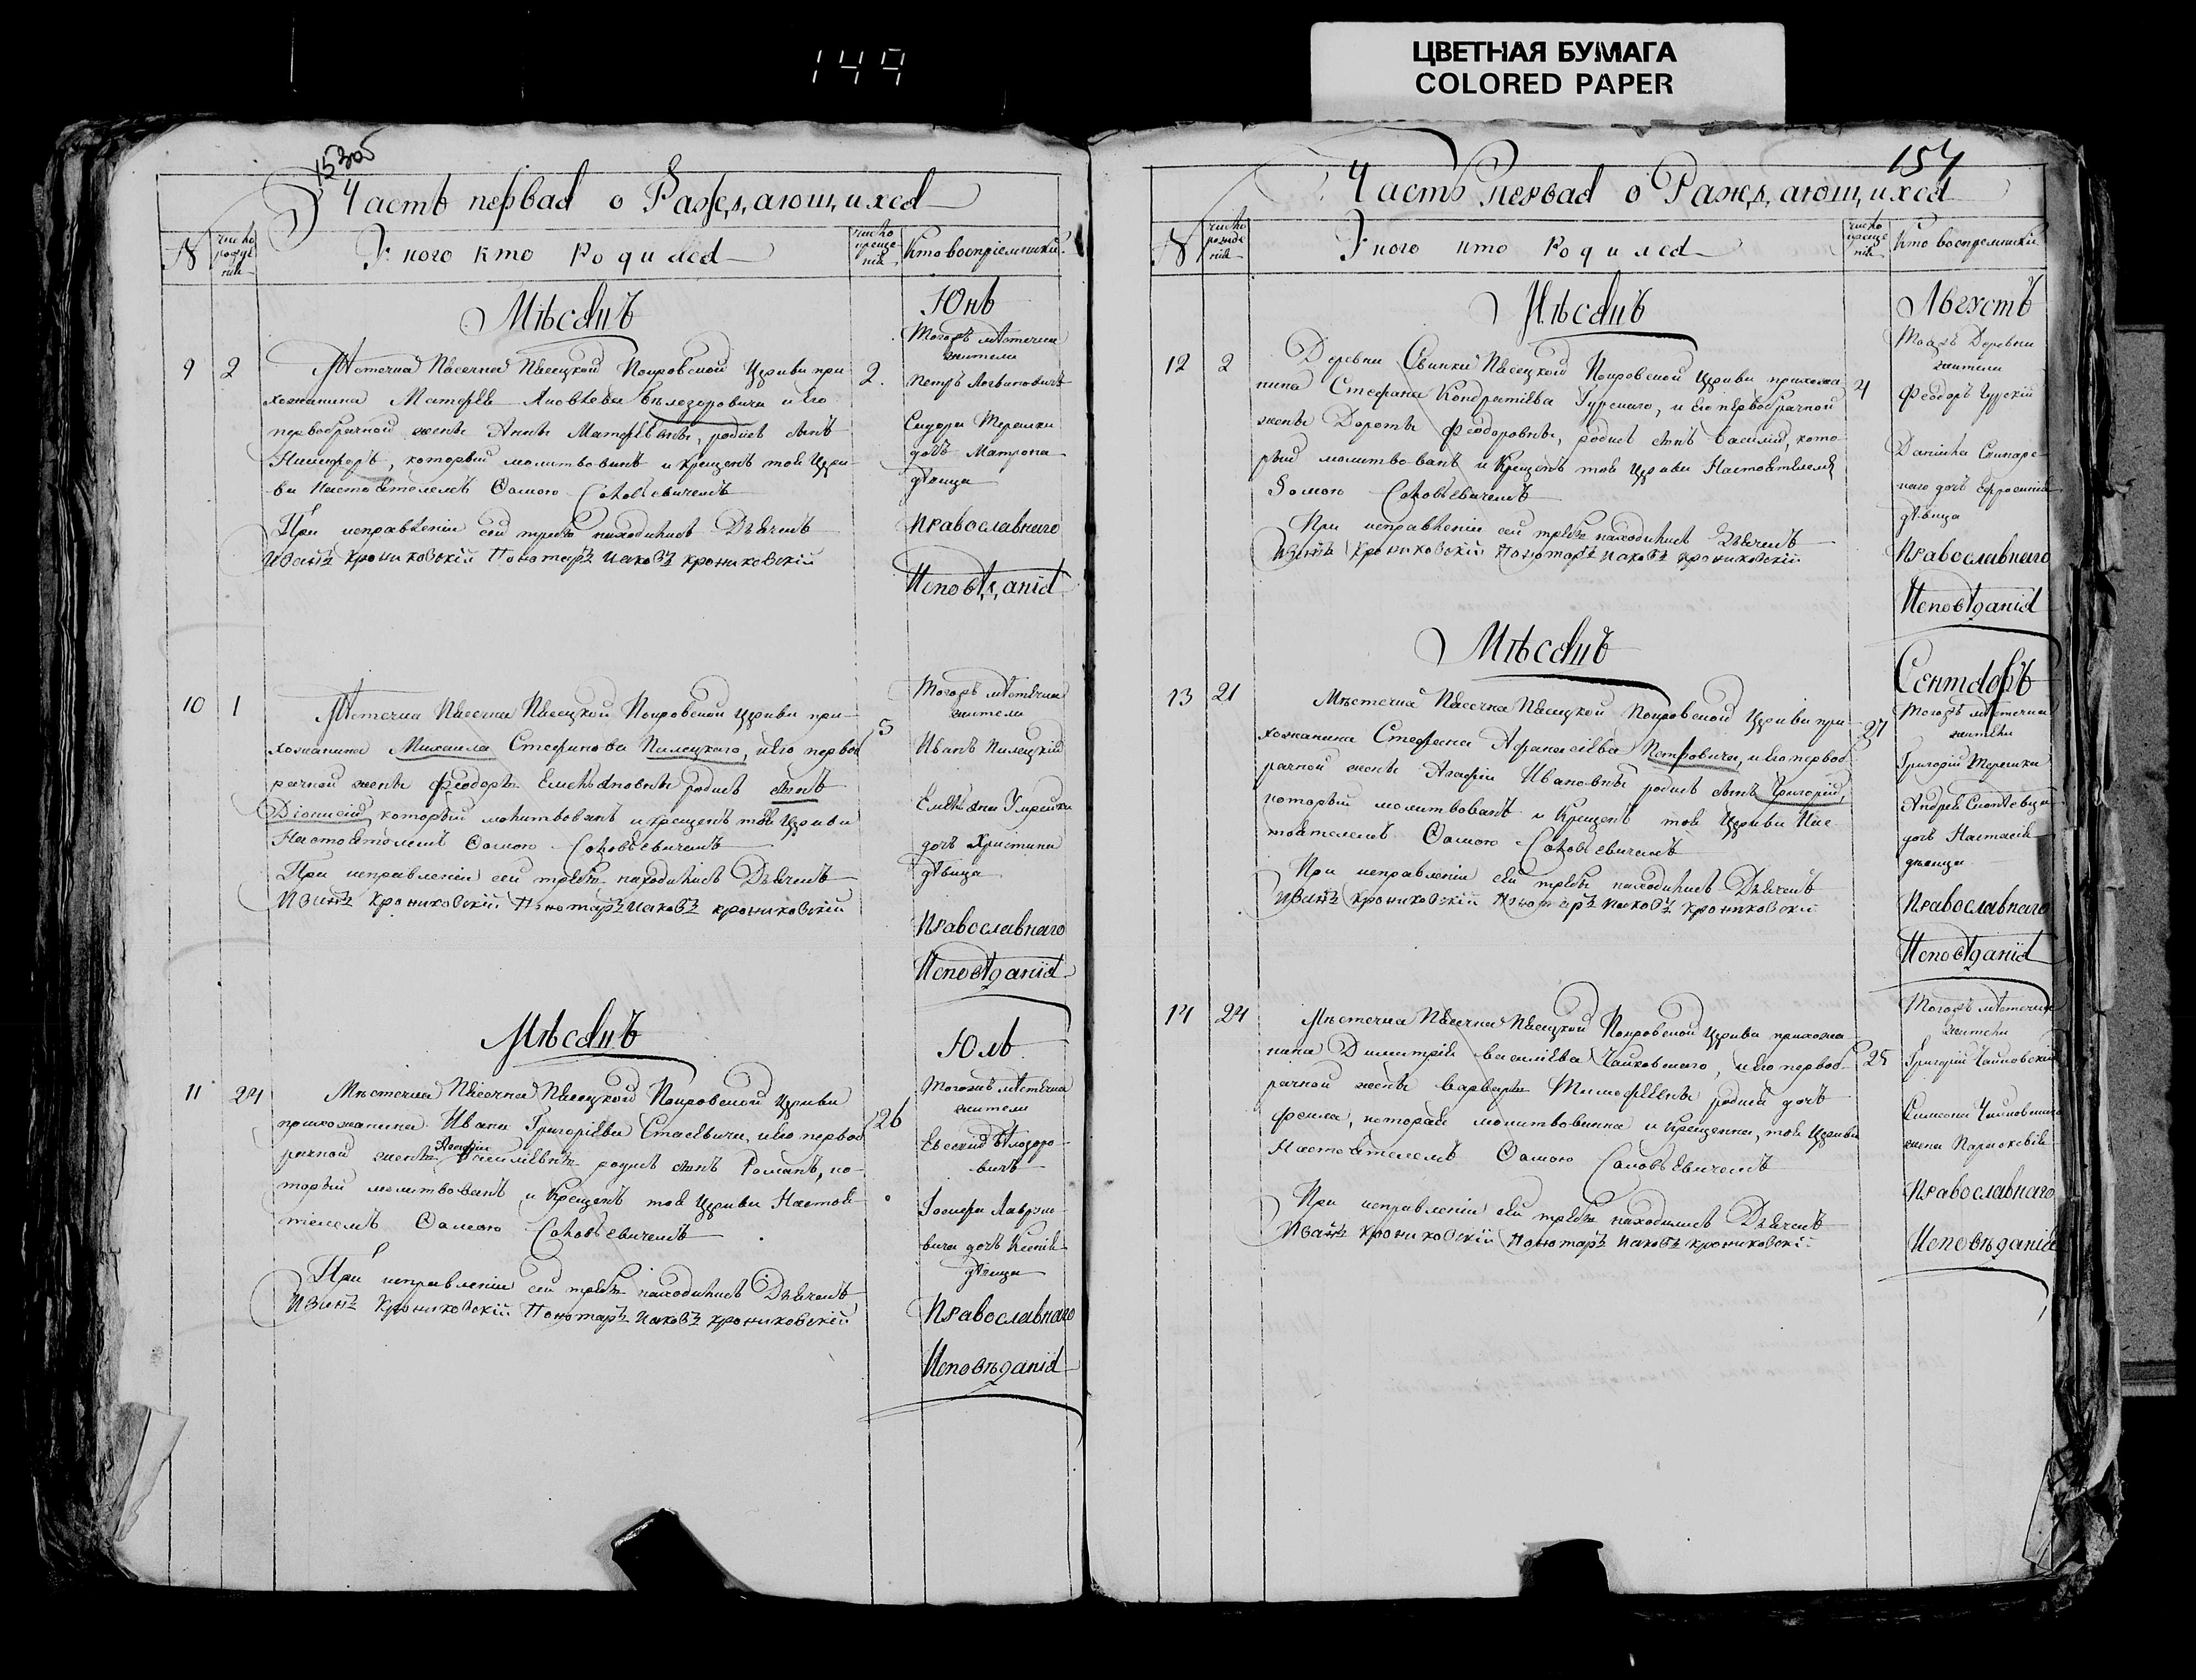 149
ЦВЕТНАЯ БУМАГА
COLORED PAPER
153об
Часть первая о Раждающихся
№
число рожде нія
У кого кто Родился
число креще нія
Кто воспріемники
Мѣсяцъ
Юнь
9
2
Мѣстечка Пасечна Пасецкой Покровской Церкви при
хожанина Матфѣя Яковлева Бѣлозоровича и его
первобрачной жены Анны Матфѣевны, родися сынъ
Никифоръ, который молитвованъ и крещенъ той Церк
ви Настоятелемъ Ѳомою Саковъевичемъ
При исправленіи сей требы находились Дьячекъ
Иванъ Крониковскій Пономарь Иаковъ Крониковскій
2.
Тогожъ мѣстечка
жители
Петръ Логвиновичъ
Сидора Терешки
дочь Матрона
дѣвица
Православнаго
Исповѣданія
10
1
Мѣстечка Пасечна Пасецкой Покровской Церкви при
хожанина Михаила Стефанова Пилецкаго, и его первоб
рачной жены Феодоры Емельяновны родися сынъ
Діонисій, который молитвованъ и крещенъ той Церкви
Настоятелемъ Ѳомою Саковъевичемъ
При исправленіи сей требы находились Дьячекъ
Иванъ Крониковскій Пономарь Иаковъ Крониковскій
5
Тогожъ мѣстечка
жители
Иванъ Пилецкій
Емельяна
дочь Христина
дѣвица
Православнаго
Исповѣданія
Мѣсяцъ
Юль
11
24
Мѣстечка Пасечна Пасецкой Покровской Церкви
прихожанина Ивана Григоріева Стасевича, и его первоб
рачной жены Агафіи Василіевны родися сынъ Романъ, ко
торый молитвованъ и крещенъ той Церкви Настоя
телемъ Ѳомою Саковъевичемъ
При исправленіи сей требы находились Дьячекъ
Иванъ Крониковскій Пономарь Иаковъ Крониковскій
26
Тогожъ мѣстечка
жители
Евсевій Бѣлозоро
вичъ
Іосифа Лаврино
вича дочь Ксенія
дѣвица
Православнаго
Исповѣданія
154
Часть Первая о Раждающихся
№
число рожде нія
У кого кто Родился
число креще нія
Кто воспремники
Мѣсяцъ
Августъ
12
2
Деревни Свинки Пасецкой Покровской Церкви прихожа
нина Стефана Кондратіева Гурскаго, и его первобрачной
жены Дороты Феодоровны, родися сынъ Василій, кото
рый молитвованъ и крещенъ той Церкви Настоятелемъ
Ѳомою Саковъевичемъ
При исправленіи сей требы находились Дьячекъ
Иванъ Крониковскій Пономарь Иаковъ Крониковскій
4
Тояжъ Деревни
жители
Феодоръ Гурскій
Даніила
наго дочь Ефросинія
дѣвица
Православнаго
Исповѣданія
Мѣсяцъ
Сентябръ
13
21
Мѣстечка Пасечна Пасецкой Покровской Церкви при
хожанина Стефана Афанасіева Петровича, и его первоб
рачной жены Агафіи Ивановны родися сынъ Григорій,
который молитвованъ и крещенъ той Церкви Нас
тоятелемъ Ѳомою Саковъевичемъ
При исправленіи сей требы находились Дьячекъ
Иванъ Крониковскій Пономарь Иаковъ Крониковскій
21
Тогожъ мѣстечка
жители
Григорій Терешка
Андрея
дочь Настасія
дѣвица
Православнаго
Исповѣданія
14
24
Мѣстечка Пасечна Пасецкой Покровской Церкви прихожа
нина Димитрія Василіева Чайковскаго, и его первоб
рачной жены Варвары Тимофѣевны родися дочь
Фекла, которая молитвованна и крещенна, той Церкви
Настоятелемъ Ѳомою Саковъевичемъ
При исправленіи сей требы находились Дьячекъ
Иванъ Крониковскій Пономарь Иаковъ Крониковскій
25
Тогожъ мѣстечка
жители
Григорій Чайковскій
Симеона Чайковскаго
жена Параскевія
Православнаго
Исповѣданія